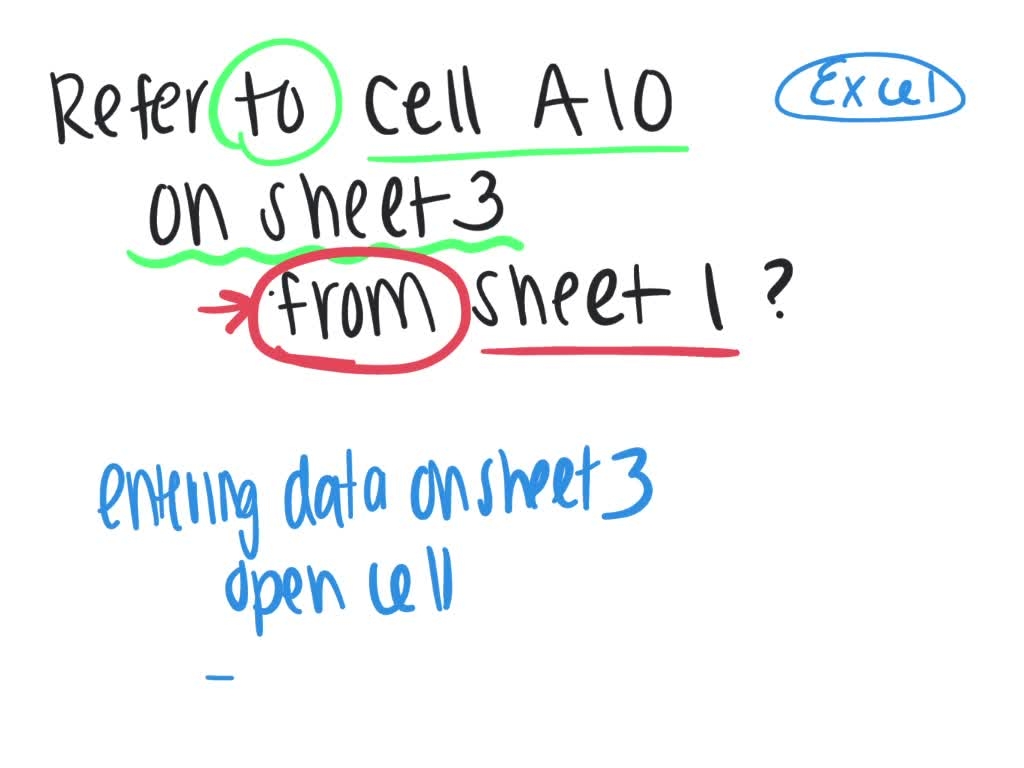 Refer to cell A10
Excel
on sheet 3
from sheet 1 ?
entering data on sheet 3
open cell